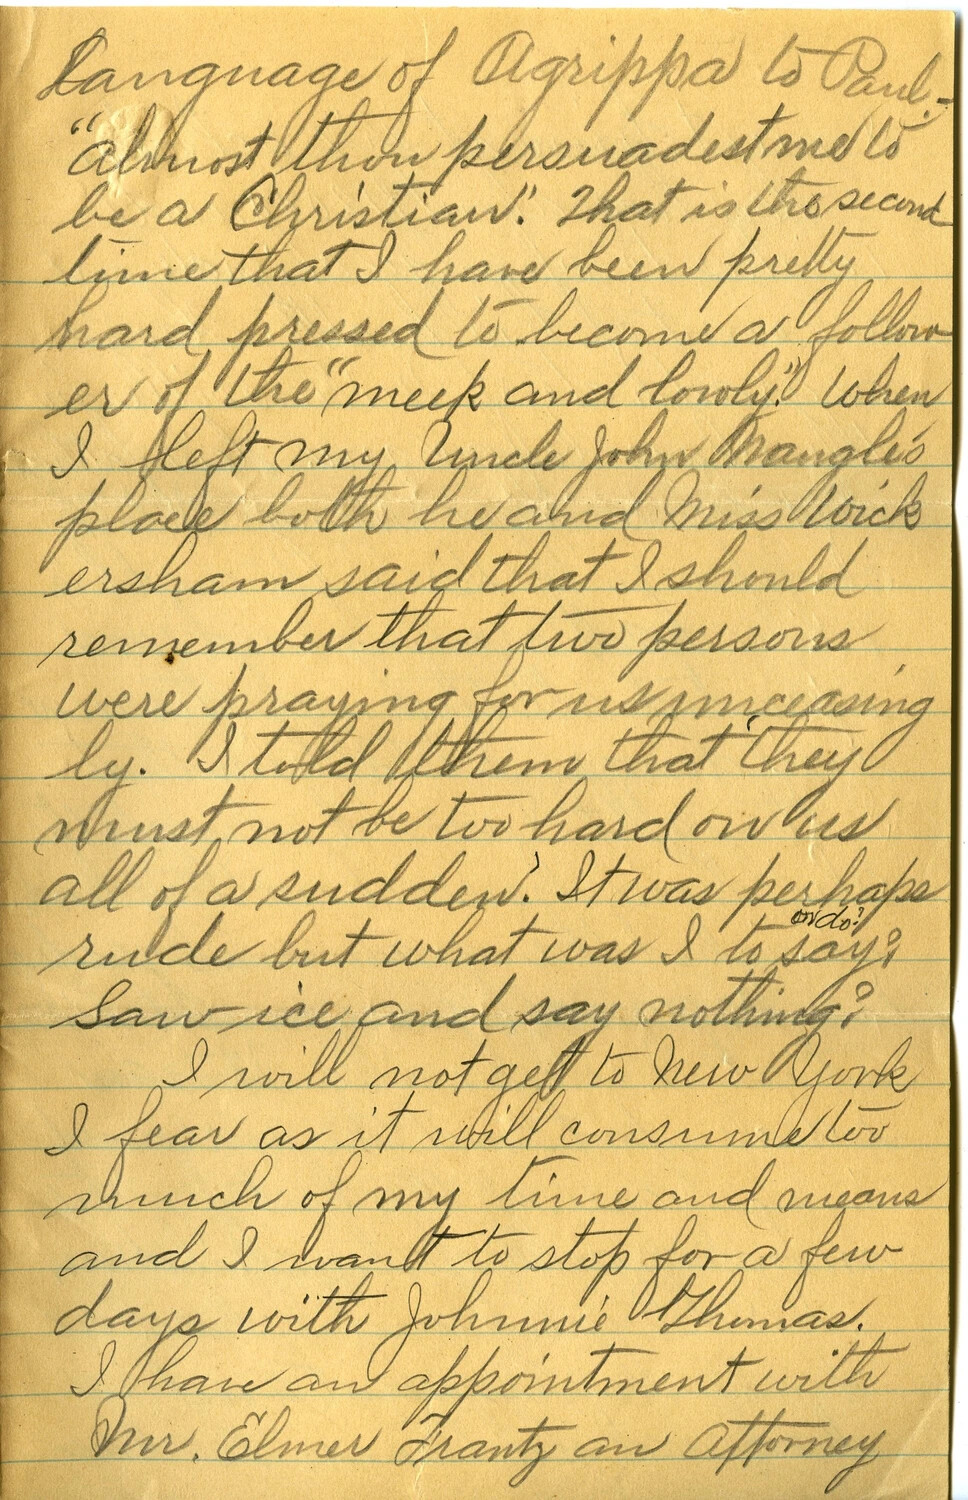 Language of Agrippa to Paul.-
"Almost thou persuadest me to
be a Christian". That is the second
time that I have been pretty
hard pressed to become a follow
er of the "meek and lowly." When
I left my Uncle John Nangle's
place both he and Miss Wick
ersham said that I should
remember that two persons
were praying for us unceasing
ly. I told them that they
must not be too hard on us
all of a sudden. It was perhaps
or do?
rude but what was I to say?
Saw ice and say nothing?
I will not get to New York
I fear as it will consume too
much of my time and means
and I want to stop for a few
days with Johnnie Thomas.
I have an appointment with
Mr. Elmer Frantz an Attorney